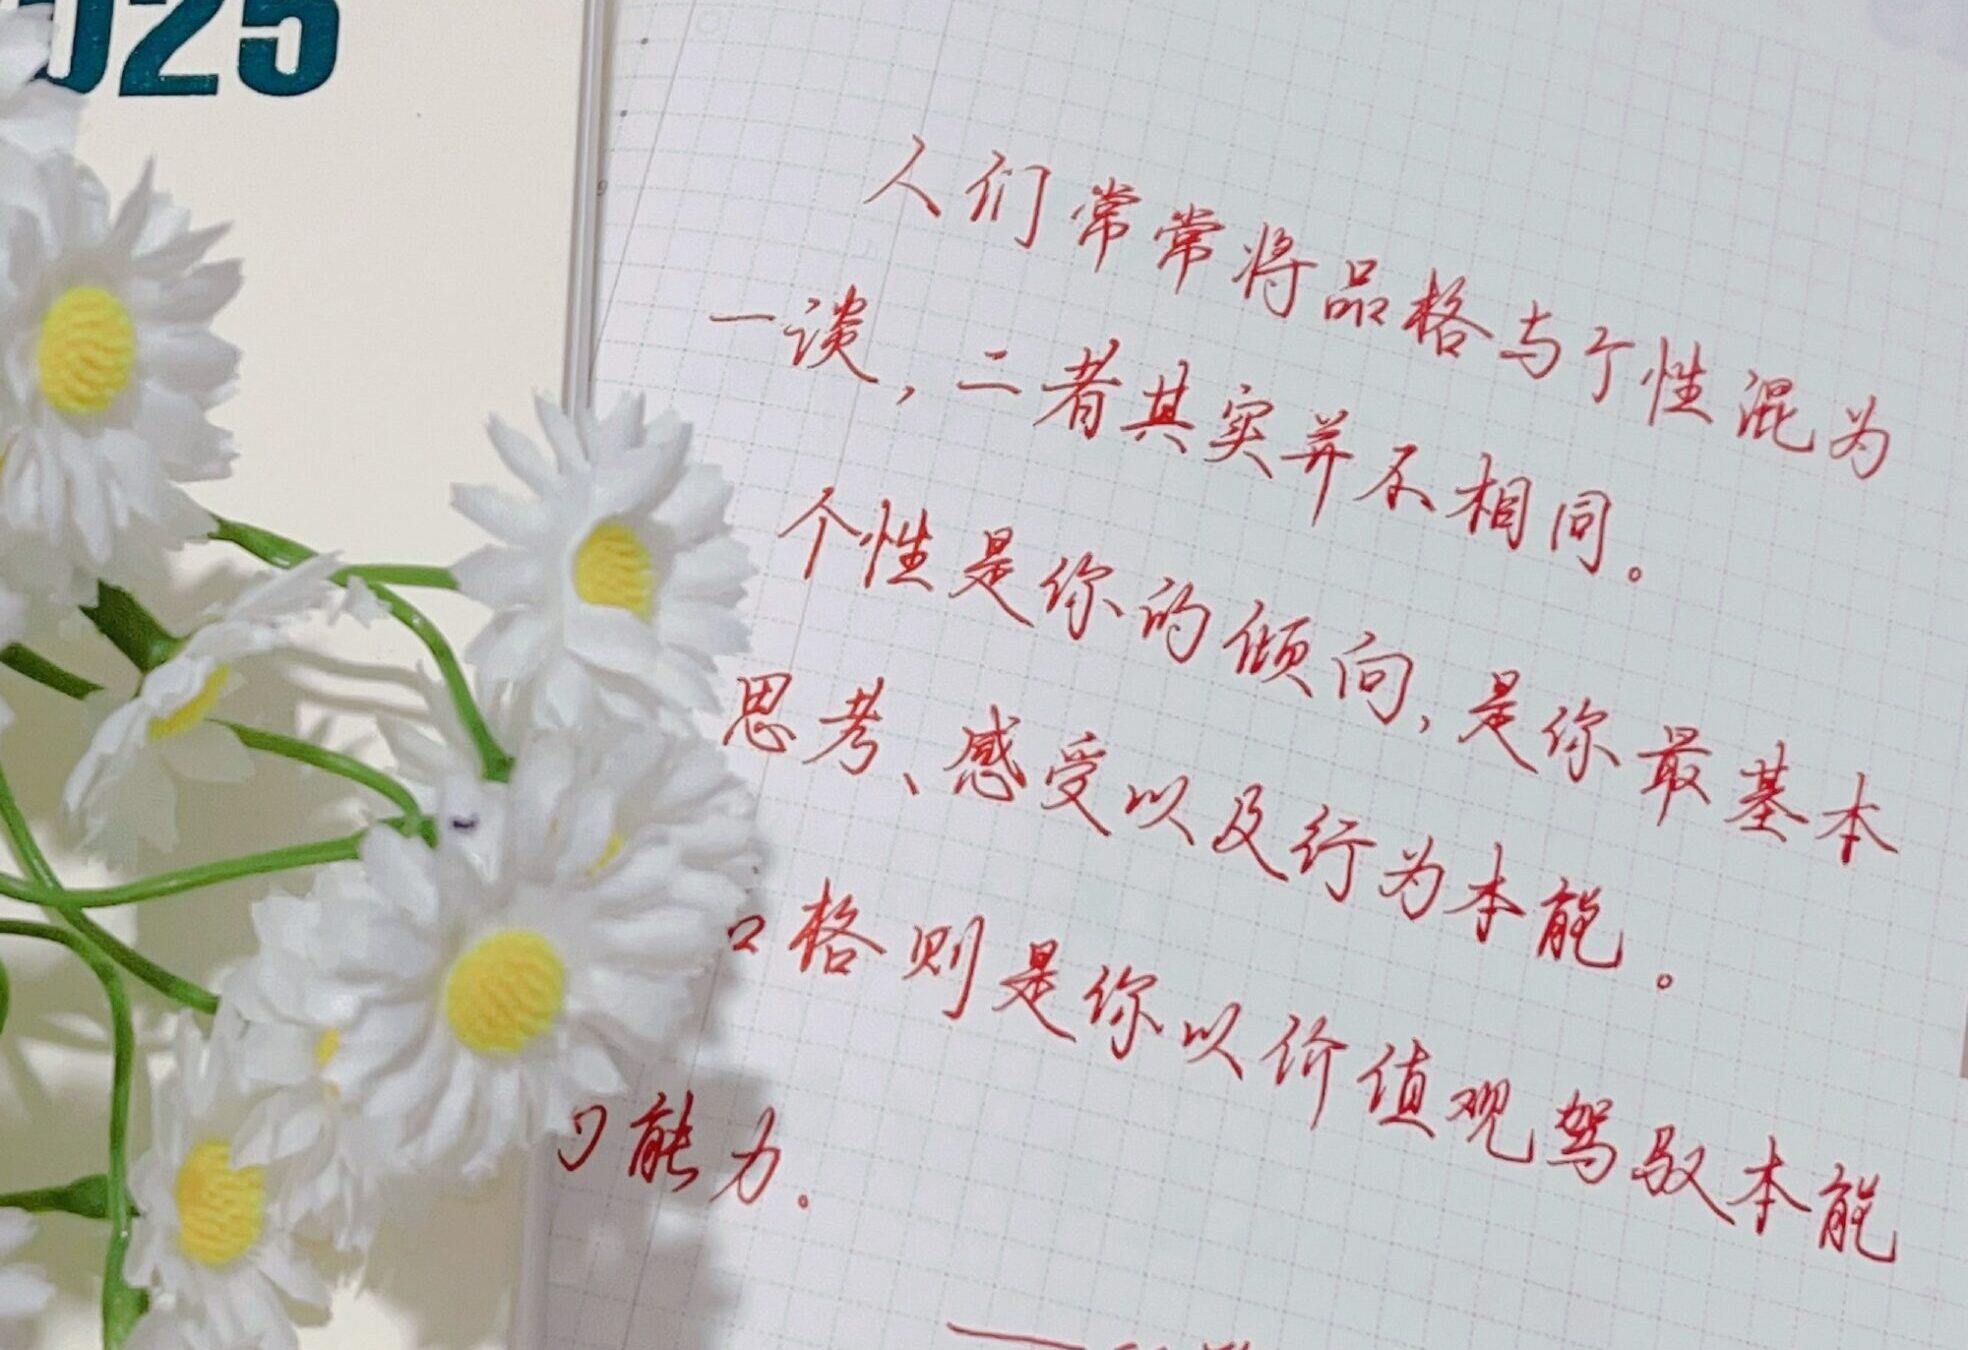 025
人们常常将品格与个性混为
一谈，二者其实并不相同。
个性是你的倾向，是你最基本
思考、感受以及行为本能。
格则是你以价值观驾驭本能
能力。